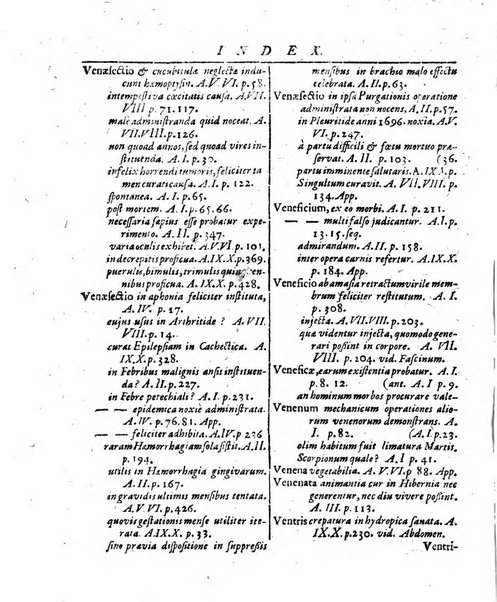 INDEX.
Venæsectio & cucubitulæ neglectæ indu-
cunt hæmoptysin. A.VI. VI. p.58.
intempestiva cæcitatis causa. A.VII.
VIII p. 71.117.
malè administranda quid noceat. A.
VII.VIII. p.126.
non quoad annos, sed quoad vires in-
stituenda. A. I. p. 30.
infelix horrendi tumoris, feliciter ta
men curati causa. A. I. p. 122.
spontanea. A. I. p.65.
post mortem. A. I. p. 65.66.
necessaria sæpius esse probatur experi-
mento. A. II. p. 347.
varia oculis exhibet. A.V.VI p. 101,
in decrepitis proficua. A.IX.X. p.369.
puerulis, bimulis, trimulis quinquen-
nibus proficua. A. IX.X. p.428.
Venæsectio in aphonia feliciter instituta,
A. IV. p. 17.
cujus usus in Arthritide ? A. VII.
VIII. p. 14.
curat Epilepsiam in Cachectica. A.
IX.X. p.328.
in Febribus malignis ansit instituen-
da? A. II. p.227.
in Febre petechiali ? A. I. p. 231.
— — epidemica noxiè administrata.
A. IV. p. 76.81. App.
— — feliciter adhibita. A. IV. p 236
raram Hæmorrhagiam sola sistit. A. I.
p. 194.
utilis in Hæmorrhagia gingivarum.
A. II. p. 167.
in gravidis ultimis mensibus tentata.
A. V.VI p.426.
quovis gestationis mense utiliter ite-
rata. A.IX.X. p. 138.
sine prævia dispositione in suppressis
mensibus in brachio malo effectu
celebrata. A. II. p.63.
Venæsectio in ipsa Purgationis operatione
administrata non nocens. A. II. p.57.
in Pleuritide anni 1696. noxia. A. V.
VI. p. 247.
à partu difficili & fœtu mortuo præ-
servat. A. II p. 103. (36.
partu imminente salutaris. A.IX.X p.
Singultum curavit. A. VII. VIII. p.
134. App.
Veneficium, ex eo morbi. A. I. p. 211.
— — multi falsò judicantur. A. I.
p. 13.15. seq.
admirandum. A. II. p. 158.
inter opera carnis refertur. A. IX.X.
p. 184. App.
Veneficio ab amasia retractum virile mem-
brum feliciter restitutum. A. I.
p. 308.
injecta. A. VII. VIII. p.203.
quæ videntur injecta, quomodo gene-
rari possint in corpore. A. VII.
VIII. p. 204. vid. Fascinum.
Veneficæ, earum existentia probatur. A. I.
p. 8. 12. (ant. A. I p. 9.
an hominum morbos procurare vale-
Venenum mechanicum operationes alio-
rum venenorum demonstrans. A.
I p. 82. (A. I p.23.
olim habitum fuit limatura Martis.
Scorpionum quale ? A. I. p. 23.
Venena vegetabilia. A. V. VI. p 88. App.
Venenata animantia cur in Hibernia nec
generentur, nec diu vivere possint.
A. III p. 113.
Ventris crepatura in hydropica sanata. A.
IX. X. p.230. vid. Abdomen.
Ventri-